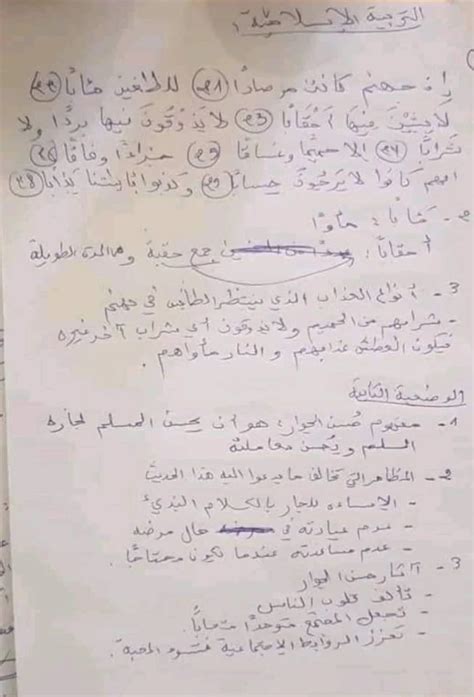 التربية الإسلامية:
إن جهنم كانت مرصادًا (21) للطاغين مئابًا (22)
لابثين فيها أحقابًا (23) لا يذوقون فيها بردًا ولا
شرابًا (24) إلا حميمًا وغساقًا (25) جزاءً وفاقًا (26)
إنهم كانوا لا يرجون حسابًا (27) وكذبوا بئايتنا كذابًا (28)
2- مئابًا: مأوًا
أحقابًا: جمع حقبة وهي المدة الطويلة
3- أنواع العذاب الذي ينتظر الطاغين في جهنم
- شرابهم من الحميم ولا يذوقون أي شراب آخر غيره
فيكون العطش عذابهم و النار مأواهم.
الوضعية الثانية
1- مفهوم حسن الجوار: هو أن يحسن المسلم لجاره
المسلم ويحسن معاملته
2- المظاهر التي تخالف ما يدعوا إليه هذا الحديث
- الإساءة للجار بالكلام البذيء
- عدم عيادته في حال مرضه
- عدم مساعدته عندما يكون محتاجًا.
3- آثار حسن الجوار
- تآلف قلوب الناس
- تجعل المجتمع متوحدًا متحابًا.
- تعزز الروابط الاجتماعية فتسود المحبة.